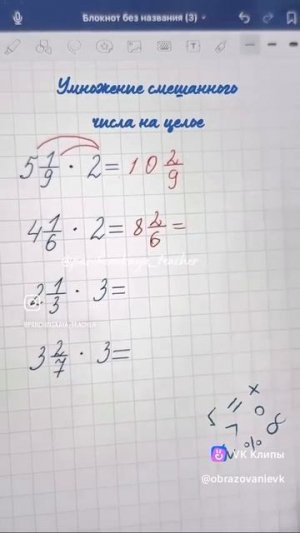 Блокнот без названия (3)
Умножение смешанного
числа на целое
5 1/9 · 2 = 10 2/9
4 1/6 · 2 = 8 2/6 =
2 1/3 · 3 =
3 2/7 · 3 =
VK Клипы
@obrazovanievk